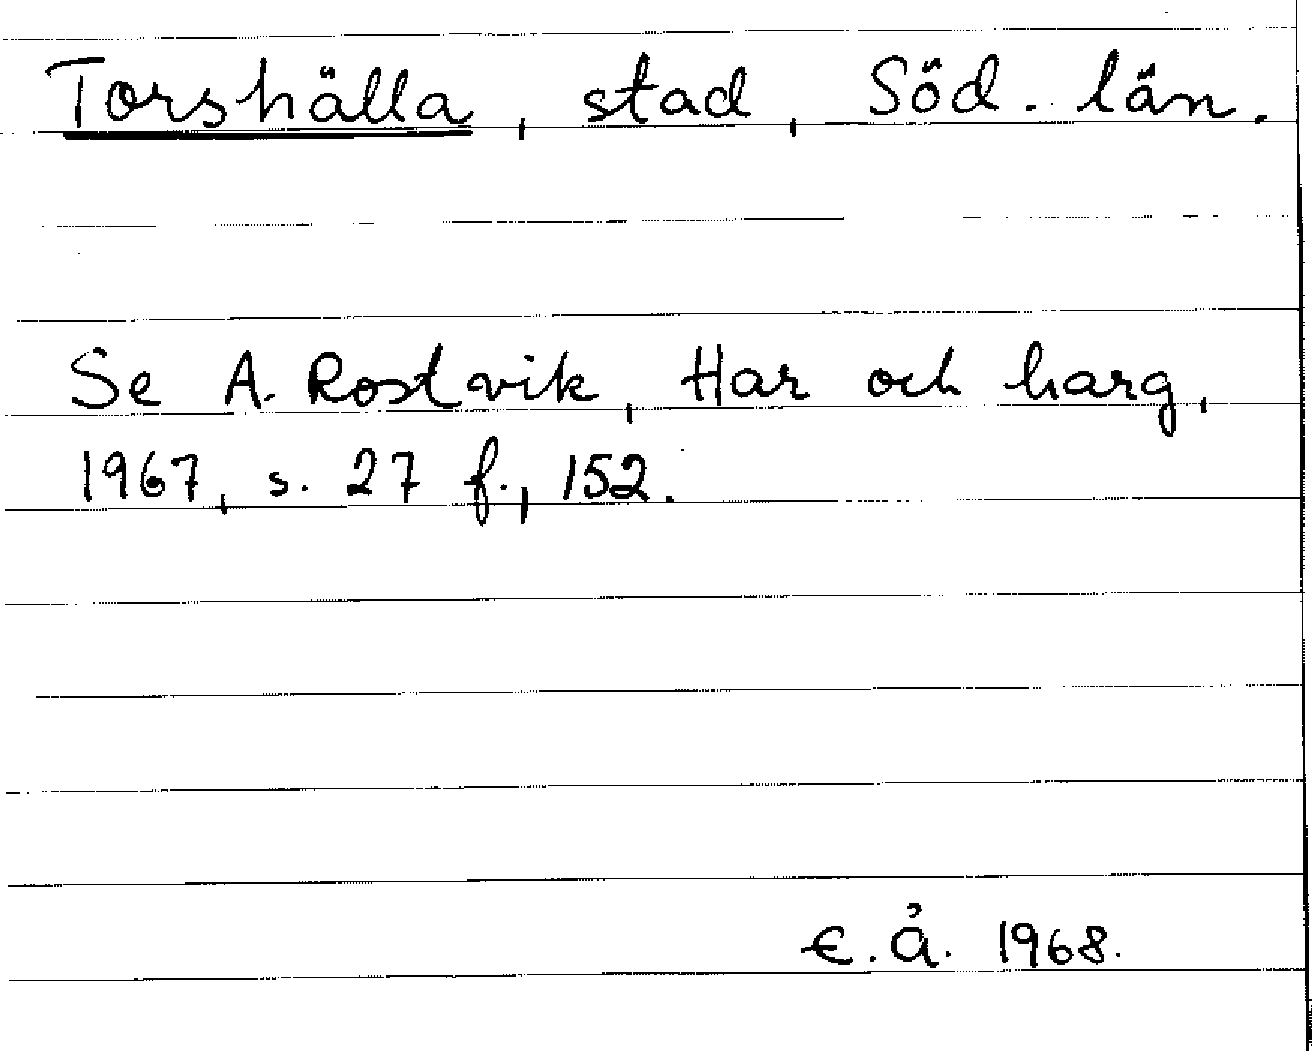 Torshälla, stad, Söd. län.
Se A. Rostvik, Har och harg,
1967, s. 27 f., 152.
E. Å. 1968.